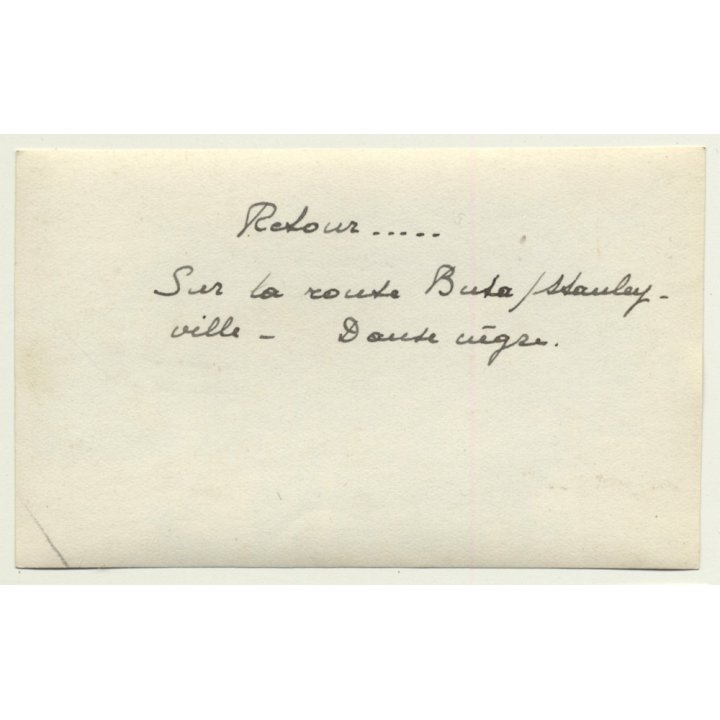 Retour.....
Sur la route Buta/Stanley-
ville - Danse nègre.